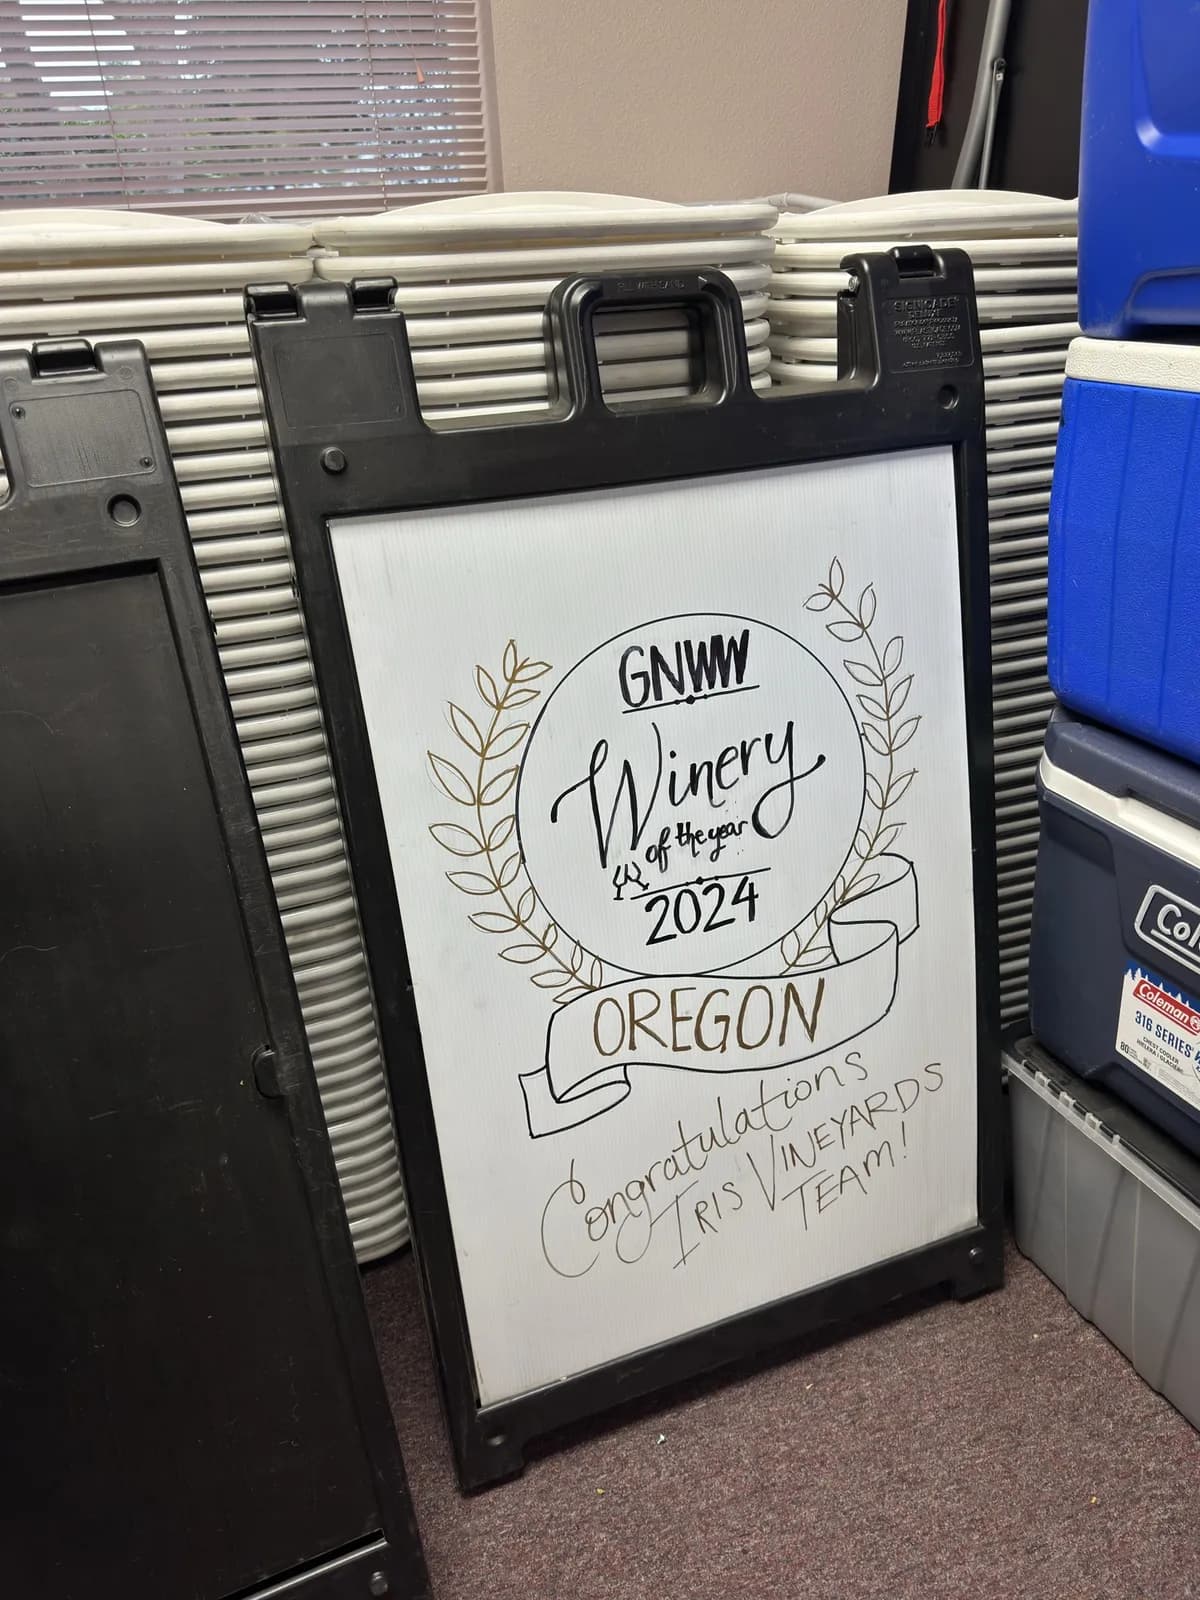 GNWW
Winery
of the year
2024
OREGON
Congratulations
IRIS VINEYARDS
TEAM!
SIGNICADE
DELUXE
Col
Coleman
316 SERIES
CHEST COOLER
80